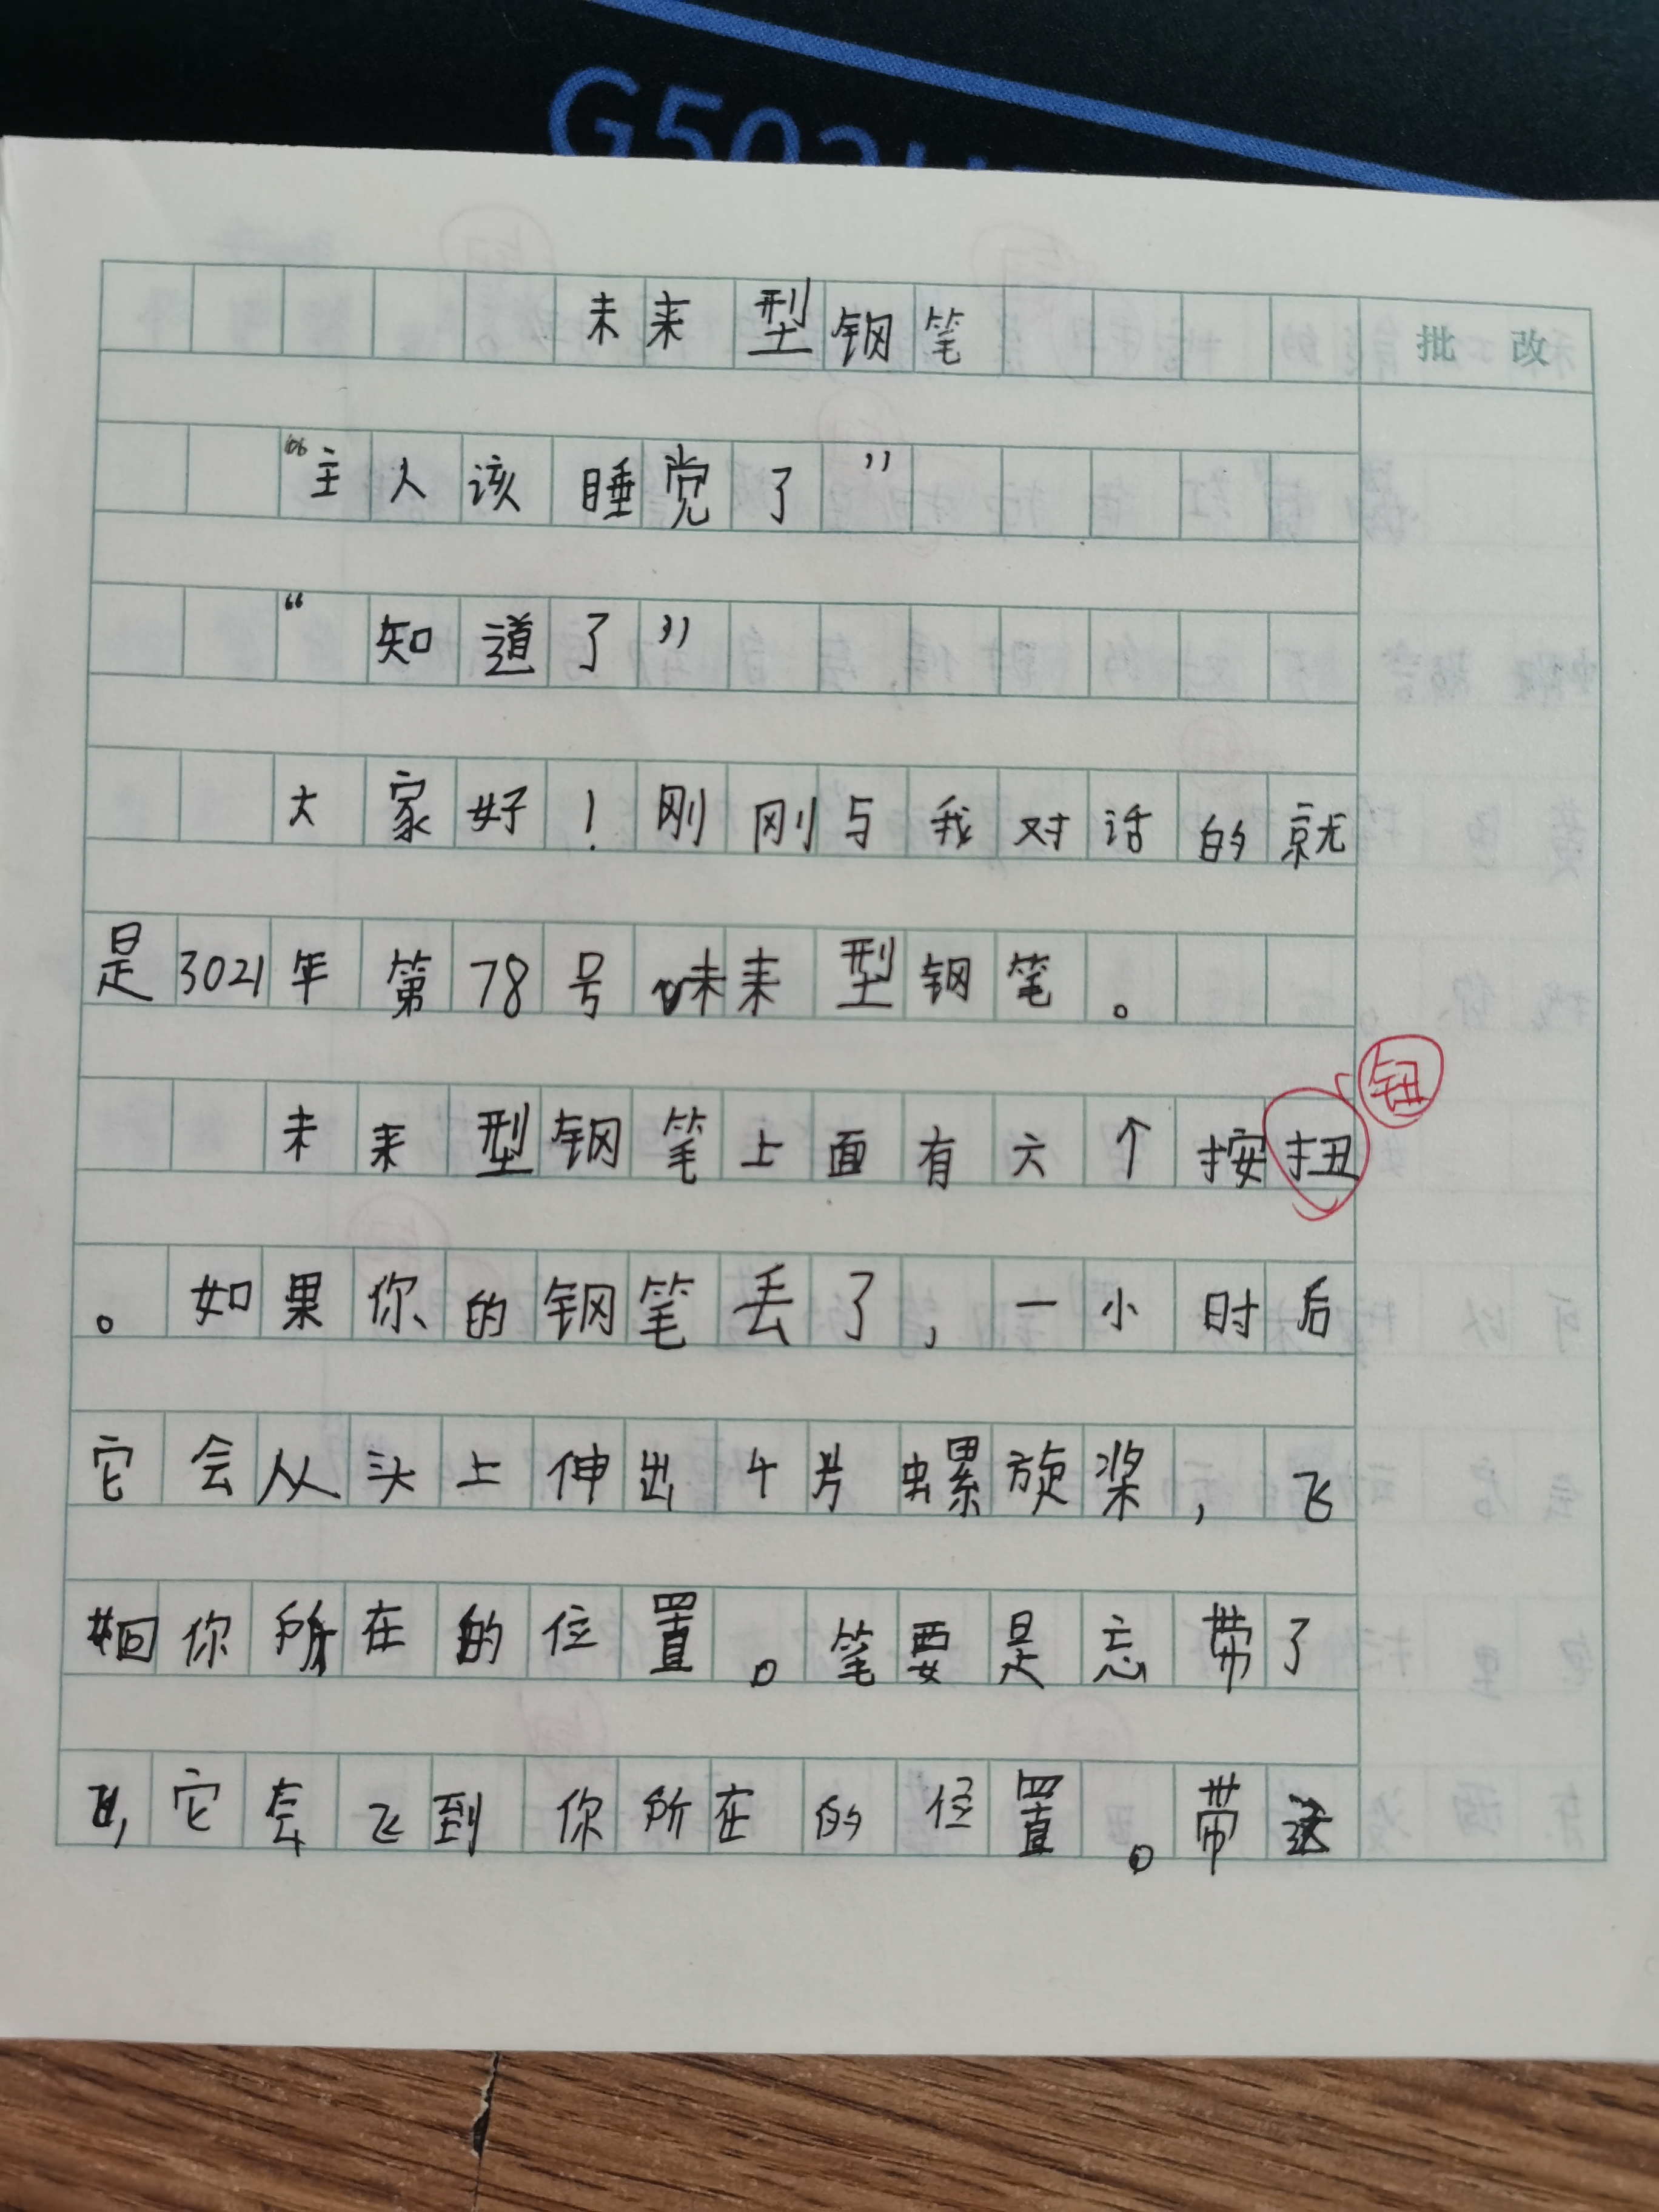 G502H
未来型钢笔
批改
“主人该睡觉了”
“知道了”
大家好！刚刚与我对话的就
是3021年第78号未来型钢笔。
钮
未来型钢笔上面有六个按扭
。如果你的钢笔丢了，一小时后
它会从头上伸出4片螺旋桨，飞
回你所在的位置。笔要是忘带了
，它会飞到你所在的位置。带